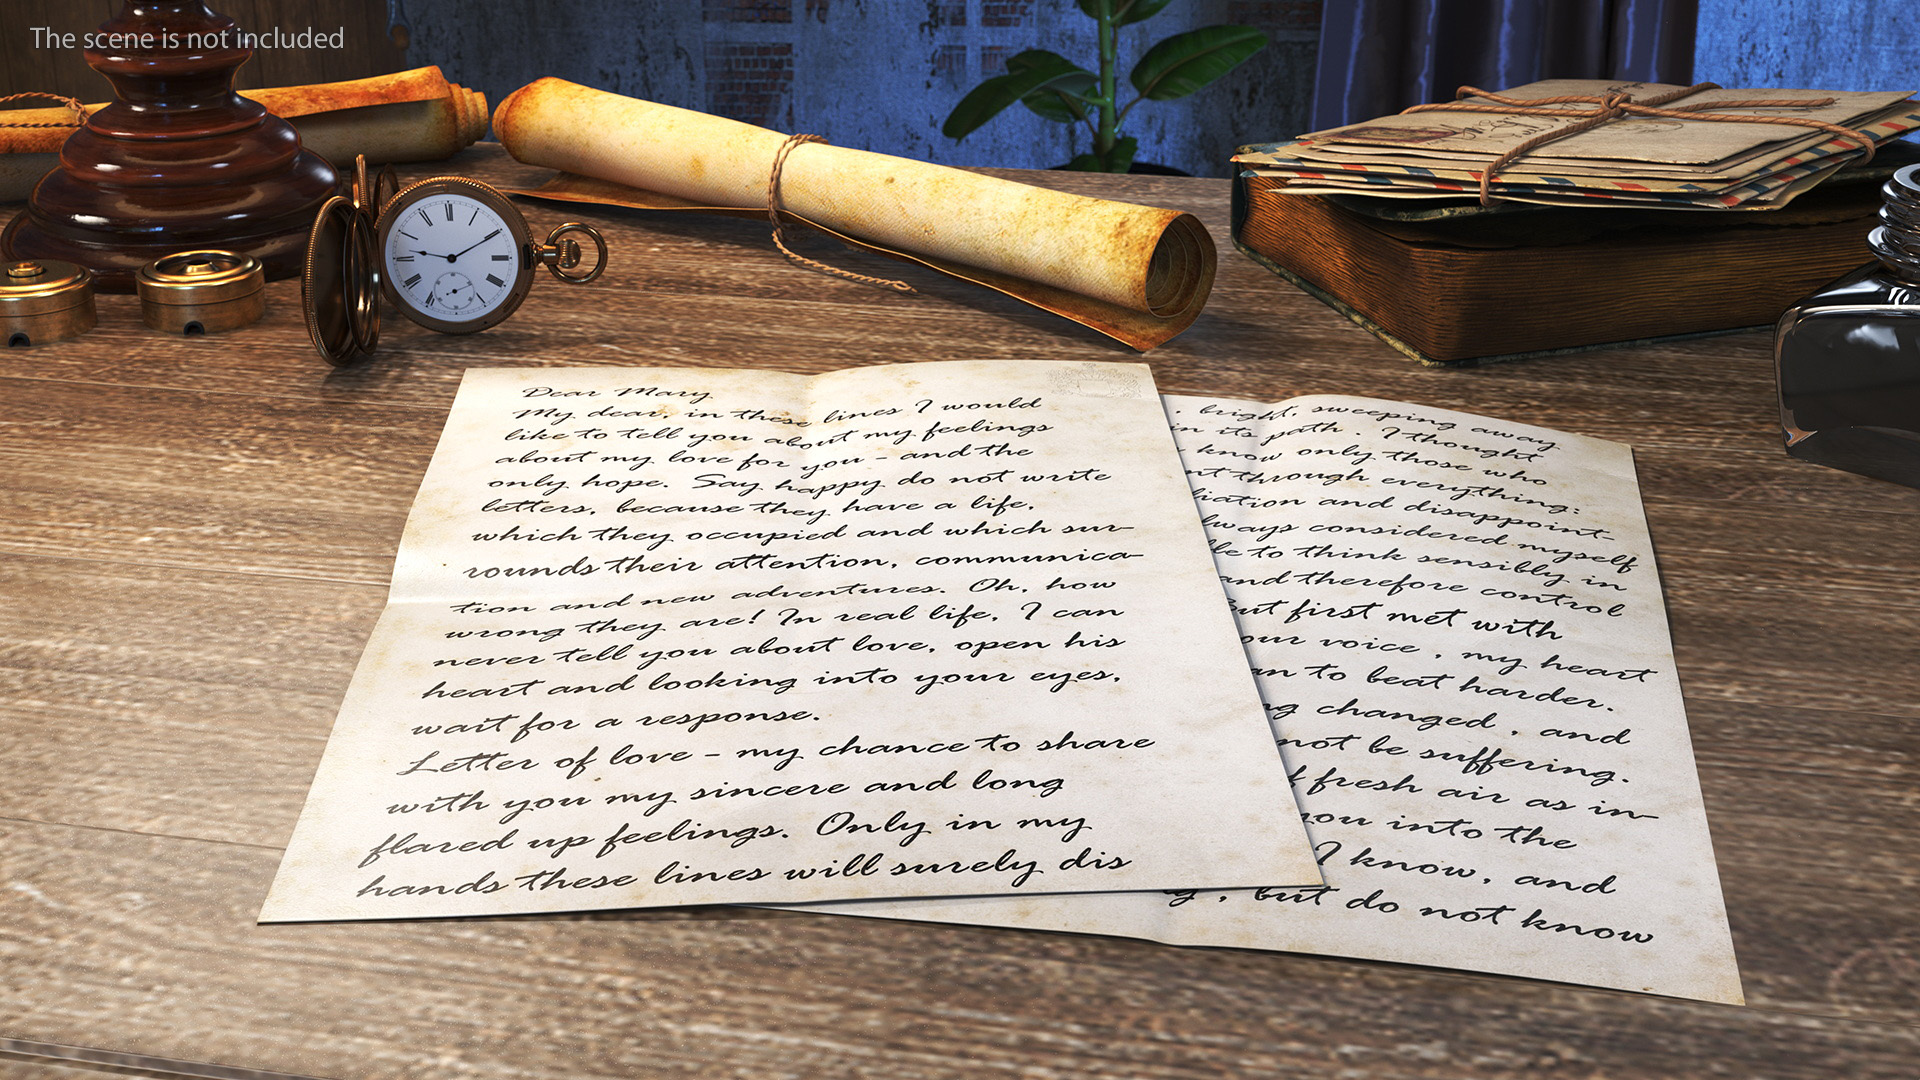 The scene is not included
Dear Mary
My dear, in these lines I would
like to tell you about my feelings
about my love for you - and the
only hope. Say happy do not write
letters, because they have a life,
which they occupied and which sur-
rounds their attention, communica-
tion and new adventures. Oh, how
wrong they are! In real life, I can
never tell you about love, open his
heart and looking into your eyes,
wait for a response.
Letter of love - my chance to share
with you my sincere and long
flared up feelings. Only in my
hands these lines will surely dis
, bright, sweeping away
in its path . I thought
know only those who
nt through everything:
liation and disappoint-
lways considered myself
le to think sensibly in
and therefore control
But first met with
our voice , my heart
an to beat harder.
ng changed , and
not be suffering.
f fresh air as in-
you into the
I know, and
g , but do not know